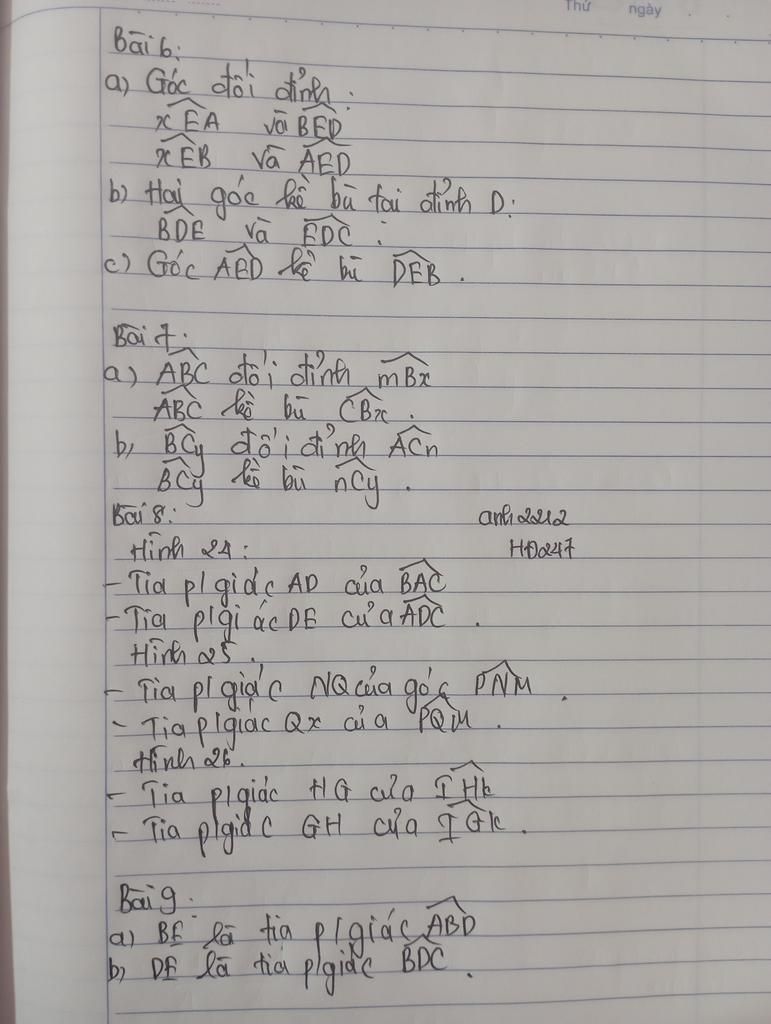 Thứ ngày
Bài 6:
a) Góc đối đỉnh:
xEA và BED
xEB và AED
b) Hai góc kề bù tại đỉnh D:
BDE và EDC:
c) Góc AED kề bù DEB.
Bài 7:
a) ABC đối đỉnh mBx
ABC kề bù CBx.
b, BCy đối đỉnh ACn
BCy kề bù nCy.
Bài 8:
anh2212
HĐ247
Hình 24:
- Tia p/giác AD của BAC
- Tia p/giác DE của ADC.
Hình 25.
- Tia p/giác NQ của góc PNM.
- Tia p/giác Qx của PQM.
Hình 26.
- Tia p/giác HG của IHk
- Tia p/giác GH của IGK.
Bài 9.
a) BE là tia p/giác ABD
b) DE là tia p/giác BDC.